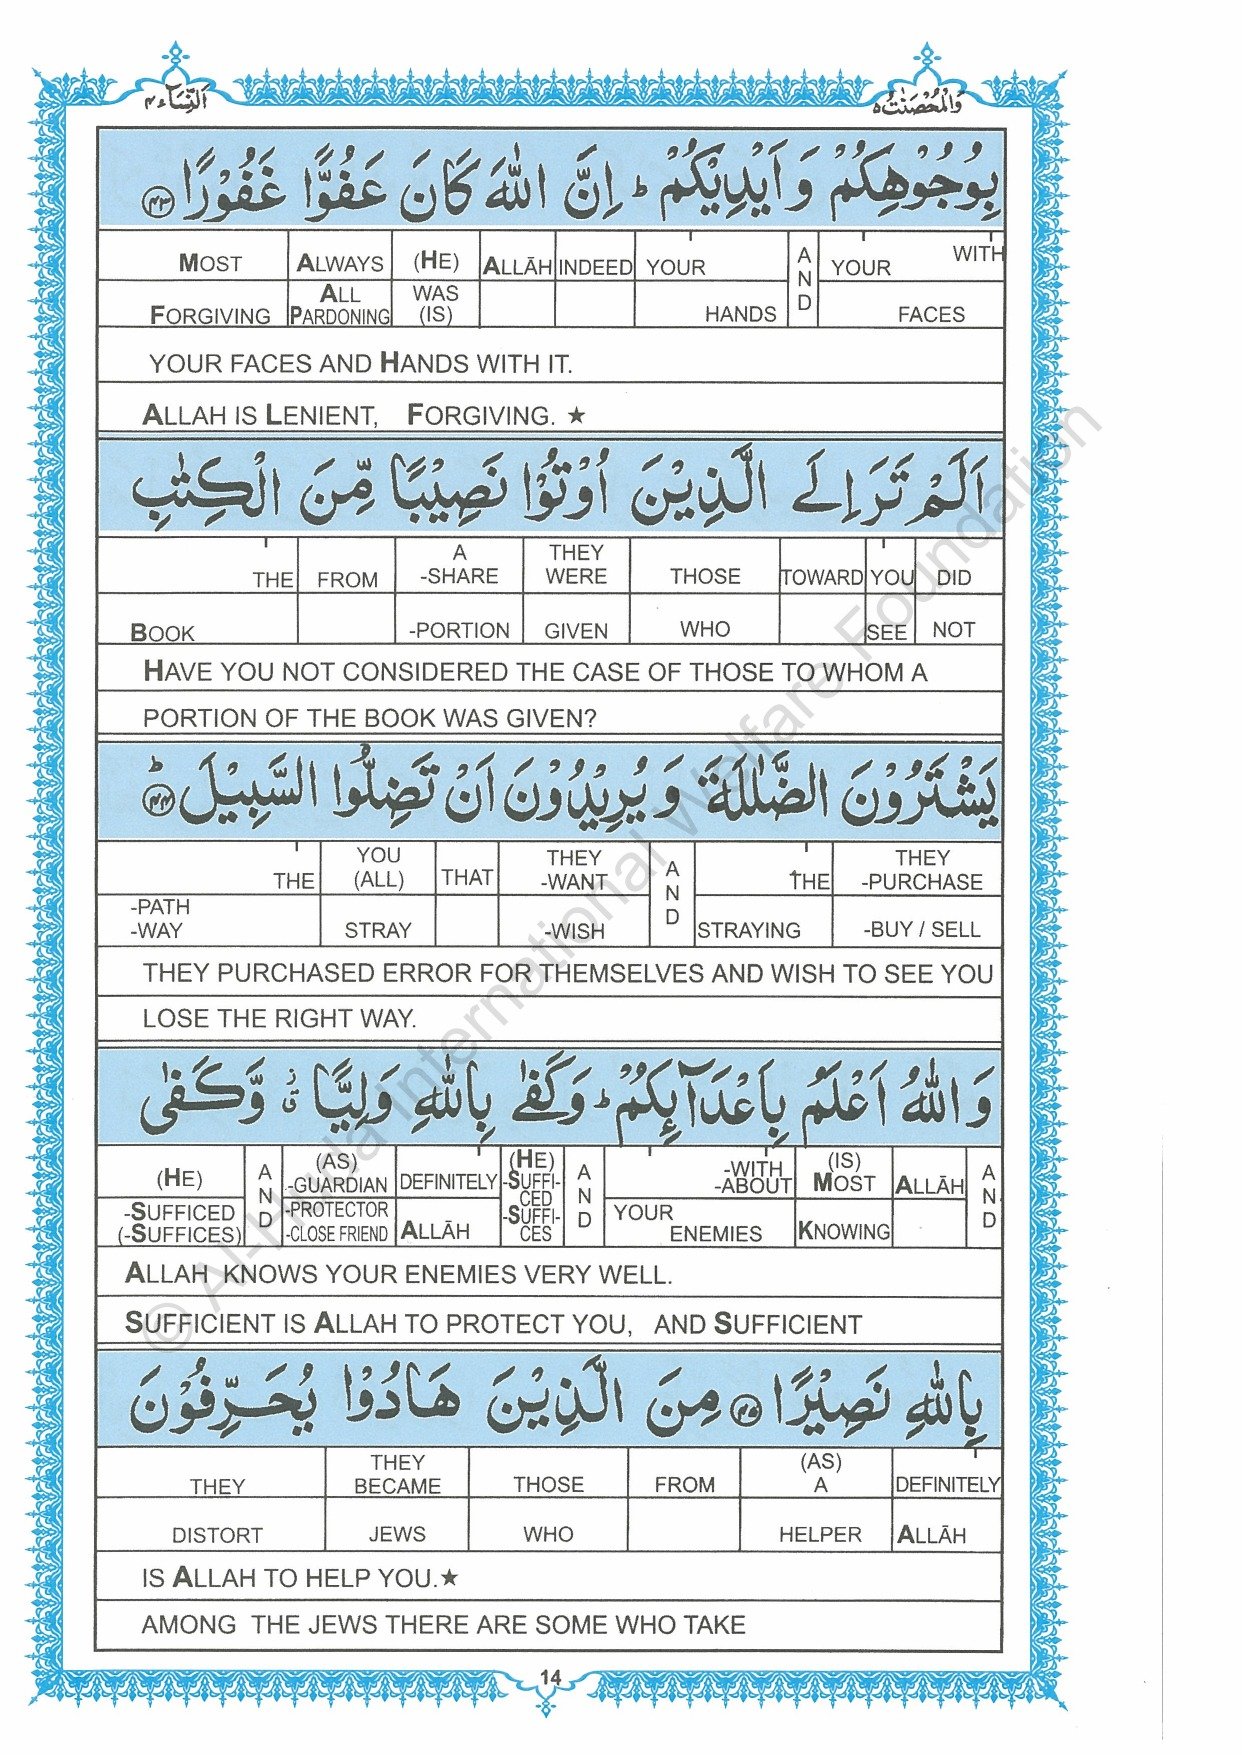 اَلنِّسَآء ٤
وَالْمُحْصَنٰتُ ٥
بِوُجُوْهِكُمْ وَ اَيْدِيْكُمْ ؕ اِنَّ اللّٰهَ كَانَ عَفُوًّا غَفُوْرًا ﴿٤٣﴾
MOST ALWAYS (HE) ALLĀH INDEED YOUR AND YOUR WITH
FORGIVING ALL PARDONING WAS (IS) HANDS FACES
YOUR FACES AND HANDS WITH IT.
ALLAH IS LENIENT, FORGIVING. ★
اَلَمْ تَرَ اِلَى الَّذِيْنَ اُوْتُوْا نَصِيْبًا مِّنَ الْكِتٰبِ
THE FROM A -SHARE THEY WERE THOSE TOWARD YOU DID
BOOK -PORTION GIVEN WHO SEE NOT
HAVE YOU NOT CONSIDERED THE CASE OF THOSE TO WHOM A
PORTION OF THE BOOK WAS GIVEN?
يَشْتَرُوْنَ الضَّلٰلَةَ وَ يُرِيْدُوْنَ اَنْ تَضِلُّوا السَّبِيْلَ ؕ ﴿٤٤﴾
THE YOU (ALL) THAT THEY -WANT AND THE THEY -PURCHASE
-PATH -WAY STRAY -WISH STRAYING -BUY / SELL
THEY PURCHASED ERROR FOR THEMSELVES AND WISH TO SEE YOU
LOSE THE RIGHT WAY.
وَ اللّٰهُ اَعْلَمُ بِاَعْدَآئِكُمْ ؕ وَ كَفٰى بِاللّٰهِ وَلِيًّا ۙ وَّ كَفٰى
(HE) AND (AS) -GUARDIAN DEFINITELY (HE) -SUFFICED AND -WITH -ABOUT (IS) MOST ALLĀH AND
-SUFFICED (-SUFFICES) -PROTECTOR -CLOSE FRIEND ALLĀH -SUFFICES YOUR ENEMIES KNOWING
ALLAH KNOWS YOUR ENEMIES VERY WELL.
SUFFICIENT IS ALLAH TO PROTECT YOU, AND SUFFICIENT
بِاللّٰهِ نَصِيْرًا ﴿٤٥﴾ مِنَ الَّذِيْنَ هَادُوْا يُحَرِّفُوْنَ
THEY THEY BECAME THOSE FROM (AS) A DEFINITELY
DISTORT JEWS WHO HELPER ALLĀH
IS ALLAH TO HELP YOU.★
AMONG THE JEWS THERE ARE SOME WHO TAKE
14
© Al-Huda International Welfare Foundation